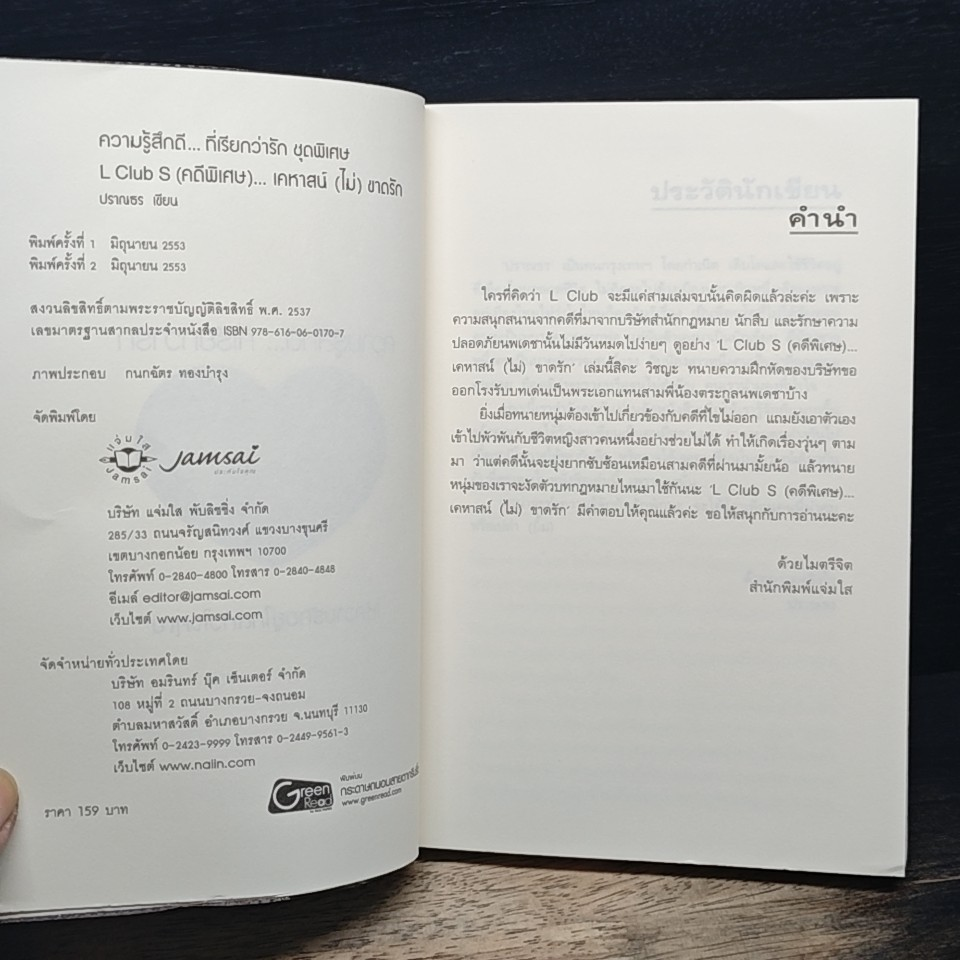 ความรู้สึกดี... ที่เรียกว่ารัก ชุดพิเศษ
L Club S (คดีพิเศษ)... เคหาสน์ (ไม่) ขาดรัก
ปราณธร เขียน
พิมพ์ครั้งที่ 1 มิถุนายน 2553
พิมพ์ครั้งที่ 2 มิถุนายน 2553
สงวนลิขสิทธิ์ตามพระราชบัญญัติลิขสิทธิ์ พ.ศ. 2537
เลขมาตรฐานสากลประจำหนังสือ ISBN 978-616-06-0170-7
ภาพประกอบ กนกฉัตร ทองบำรุง
จัดพิมพ์โดย
แจ่มใส
jamsai
jamsai
บริษัท แจ่มใส พับลิชชิ่ง จำกัด
285/33 ถนนจรัญสนิทวงศ์ แขวงบางขุนศรี
เขตบางกอกน้อย กรุงเทพฯ 10700
โทรศัพท์ 0-2840-4800 โทรสาร 0-2840-4848
อีเมล์ editor@jamsai.com
เว็บไซต์ www.jamsai.com
จัดจำหน่ายทั่วประเทศโดย
บริษัท อมรินทร์ บุ๊ค เซ็นเตอร์ จำกัด
108 หมู่ที่ 2 ถนนบางกรวย-จงถนอม
ตำบลมหาสวัสดิ์ อำเภอบางกรวย จ.นนทบุรี 11130
โทรศัพท์ 0-2423-9999 โทรสาร 0-2449-9561-3
เว็บไซต์ www.naiin.com
Green Read
พิมพ์บน
กระดาษถนอมสายตากรีนรี้ด
www.greenread.com
ราคา 159 บาท
ประวัตินักเขียน
คำนำ
ใครที่คิดว่า L Club จะมีแค่สามเล่มจบนั้นคิดผิดแล้วล่ะค่ะ เพราะ
ความสนุกสนานจากคดีที่มาจากบริษัทสำนักกฎหมาย นักสืบ และรักษาความ
ปลอดภัยนพเดชานั้นไม่มีวันหมดไปง่ายๆ ดูอย่าง ‘L Club S (คดีพิเศษ)...
เคหาสน์ (ไม่) ขาดรัก’ เล่มนี้สิคะ วิชญะ ทนายความฝึกหัดของบริษัทขอ
ออกโรงรับบทเด่นเป็นพระเอกแทนสามพี่น้องตระกูลนพเดชาบ้าง
ยิ่งเมื่อทนายหนุ่มต้องเข้าไปเกี่ยวข้องกับคดีที่ไขไม่ออก แถมยังเอาตัวเอง
เข้าไปพัวพันกับชีวิตหญิงสาวคนหนึ่งอย่างช่วยไม่ได้ ทำให้เกิดเรื่องวุ่นๆ ตาม
มา ว่าแต่คดีนั้นจะยุ่งยากซับซ้อนเหมือนสามคดีที่ผ่านมามั้ยน้อ แล้วทนาย
หนุ่มของเราจะงัดตัวบทกฎหมายไหนมาใช้กันนะ ‘L Club S (คดีพิเศษ)...
เคหาสน์ (ไม่) ขาดรัก’ มีคำตอบให้คุณแล้วค่ะ ขอให้สนุกกับการอ่านนะคะ
ด้วยไมตรีจิต
สำนักพิมพ์แจ่มใส